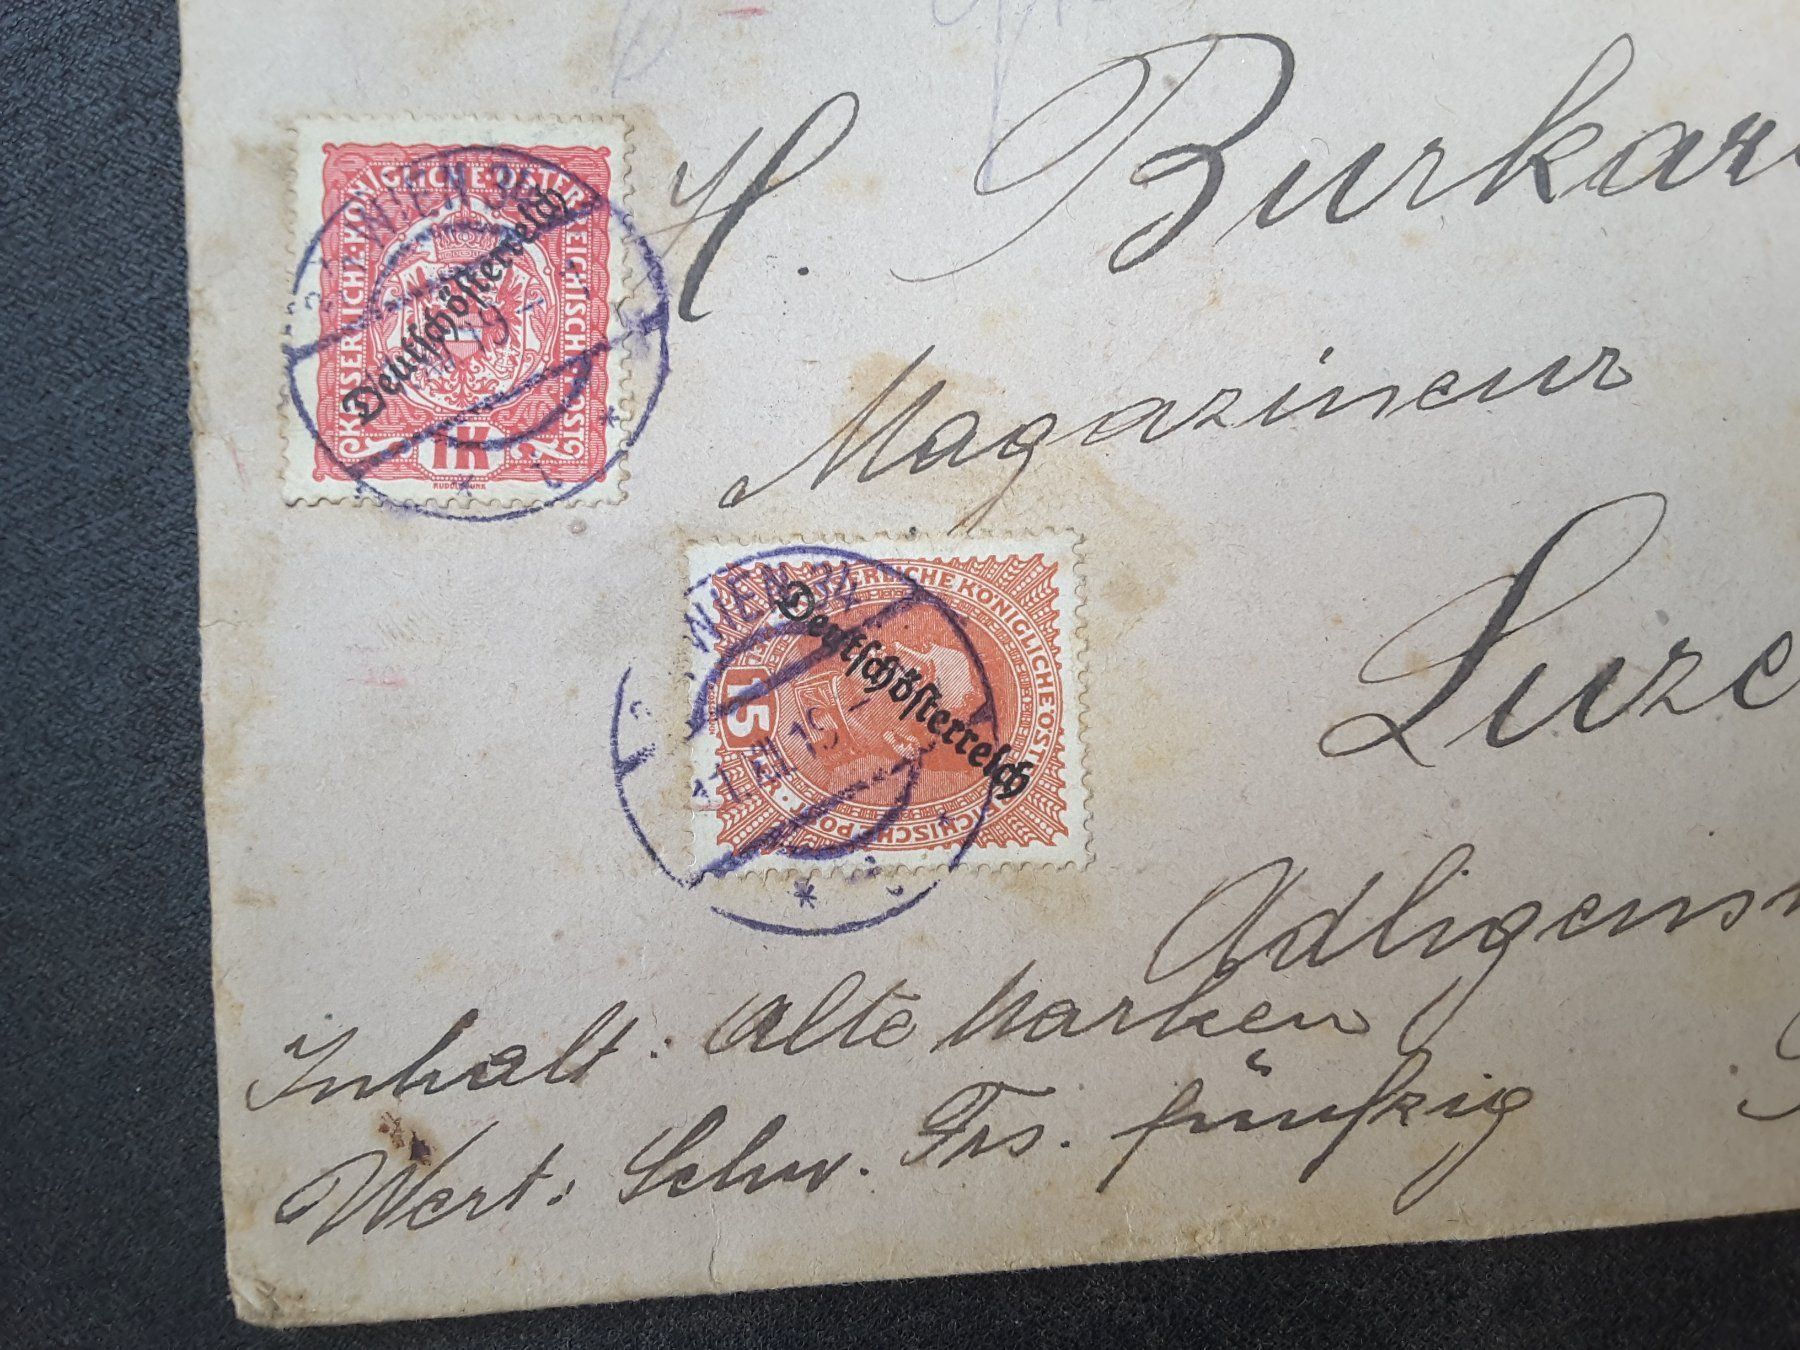 H. Burkar
Magazineur
Luze
Adligens
Inhalt: Alte Marken
Wert: Schw. Frs. fünfzig
KAISERLICHE·KÖNIGLICHE·ÖSTERREICHISCHE·POST
Deutschösterreich
1K
WIEN
19
15
KAISERLICHE KÖNIGLICHE ÖSTERREICHISCHE POST
Deutschösterreich
WIEN
11.XII.19